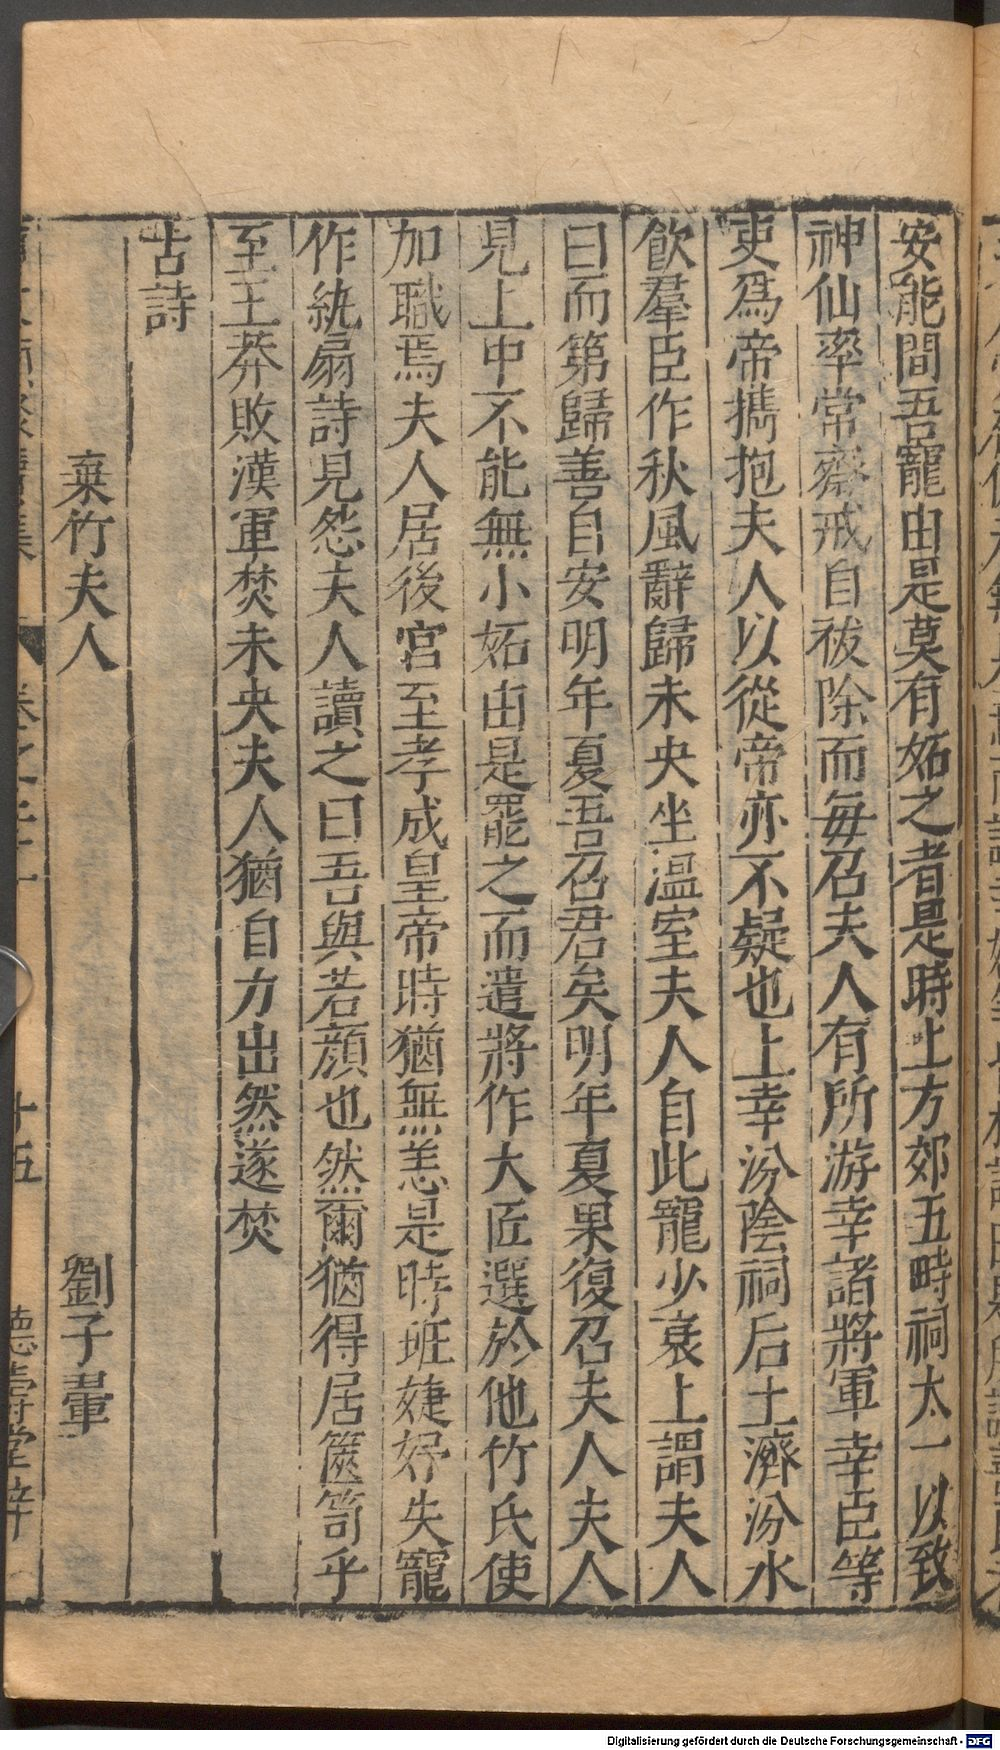 安能間吾寵由是莫有妬之者是時上方郊五畤祠太一以致
神仙率常齋戒自祓除而每召夫人有所游幸諸將軍幸臣等
吏爲帝攜抱夫人以從帝亦不疑也上幸汾陰祠后土濟汾水
飮羣臣作秋風辭歸未央坐溫室夫人自此寵少衰上謂夫人
曰而第歸善自安明年夏吾召君矣明年夏果復召夫人夫人
見上中不能無小妬由是罷之而遣將作大匠選於他竹氏使
加職焉夫人居後宮至孝成皇帝時猶無恙是時班婕妤失寵
作紈扇詩見怨夫人讀之曰吾與若顔也然爾猶得居篋笥乎
至王莽敗漢軍焚未央夫人猶自力出然遂焚
古詩
棄竹夫人 劉子翬
卷之二十 十五 德壽堂梓
Digitalisierung gefördert durch die Deutsche Forschungsgemeinschaft - DFG